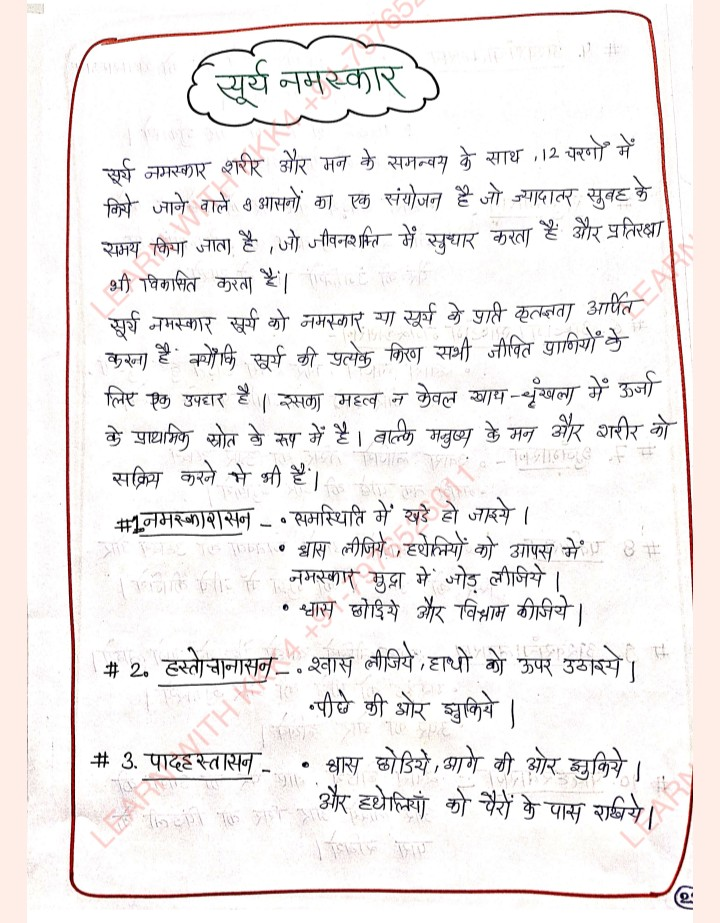 सूर्य नमस्कार
सूर्य नमस्कार शरीर और मन के समन्वय के साथ, 12 चरणों में
किये जाने वाले 8 आसनों का एक संयोजन है जो ज्यादातर सुबह के
समय किया जाता है, जो जीवनशक्ति में सुधार करता है और प्रतिरक्षा
भी विकासित करता है।
सूर्य नमस्कार सूर्य को नमस्कार या सूर्य के प्रति कृतज्ञता अर्पित
करना है क्योंकि सूर्य की प्रत्येक किरण सभी जीवित प्राणियों के
लिए एक उपहार है। इसका महत्व न केवल खाद्य-श्रृंखला में ऊर्जा
के प्राथमिक स्रोत के रूप में है। बाल्कि मनुष्य के मन और शरीर को
सक्रिय करने मे भी है।
#1 नमस्कारासन - • समस्थिति में खडे हो जाइये।
• श्वास लीजिये, हथेलियों को आपस में
नमस्कार मुद्रा में जोड़ लीजिये।
• श्वास छोडिये और विश्राम कीजिये।
# 2. हस्तोत्तानासन - • श्वास लीजिये, हाथो को ऊपर उठाइये।
• पीछे की ओर झुकिये।
# 3. पादहस्तासन - • श्वास छोडिये, आगे की ओर झुकिये।
और हथेलियाँ को पैरों के पास राखिये।
LEARN WITH KKK4 +91-7976529011